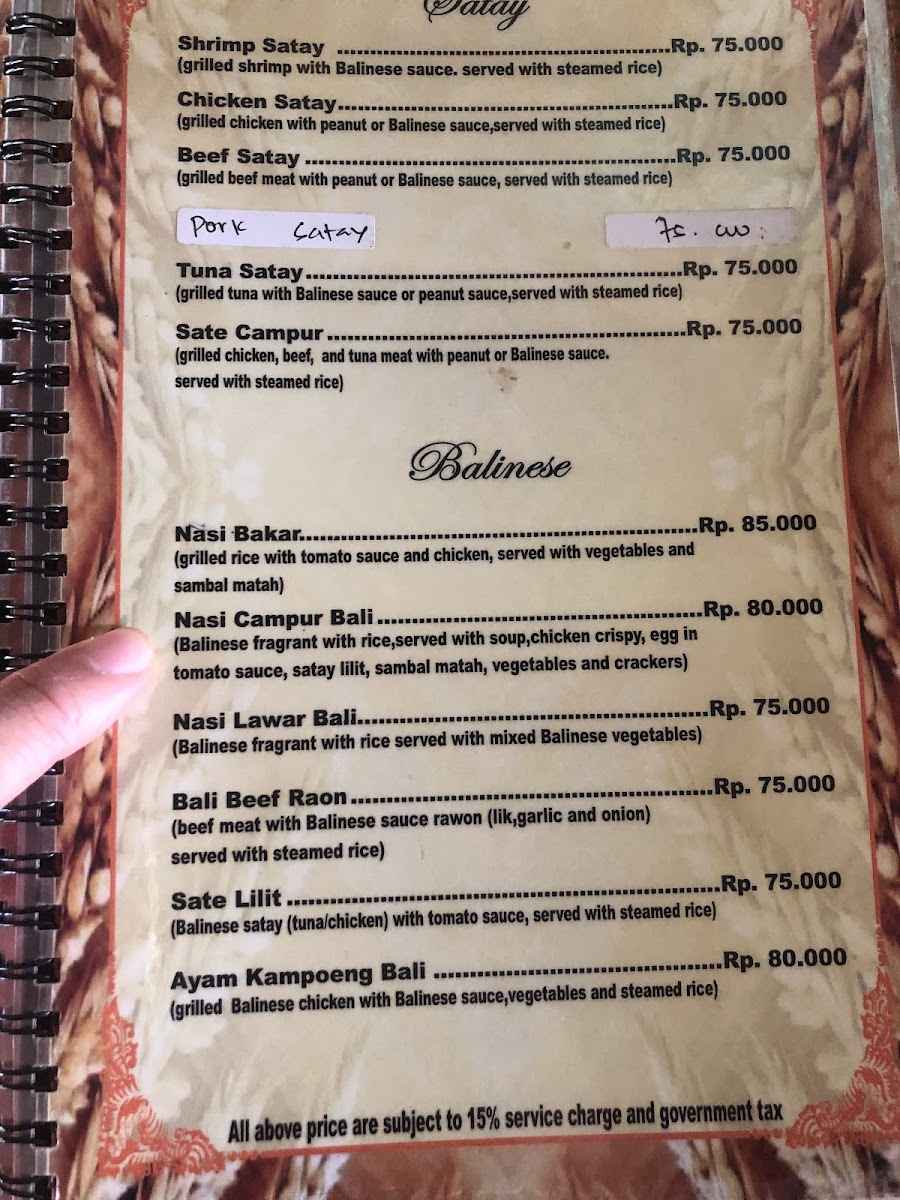 Satay
Shrimp Satay ................................................Rp. 75.000
(grilled shrimp with Balinese sauce. served with steamed rice)
Chicken Satay................................................Rp. 75.000
(grilled chicken with peanut or Balinese sauce,served with steamed rice)
Beef Satay .....................................................Rp. 75.000
(grilled beef meat with peanut or Balinese sauce, served with steamed rice)
Pork Satay 75.000
Tuna Satay......................................................Rp. 75.000
(grilled tuna with Balinese sauce or peanut sauce,served with steamed rice)
Sate Campur...................................................Rp. 75.000
(grilled chicken, beef, and tuna meat with peanut or Balinese sauce.
served with steamed rice)
Balinese
Nasi Bakar.........................................................Rp. 85.000
(grilled rice with tomato sauce and chicken, served with vegetables and
sambal matah)
Nasi Campur Bali..............................................Rp. 80.000
(Balinese fragrant with rice,served with soup,chicken crispy, egg in
tomato sauce, satay lilit, sambal matah, vegetables and crackers)
Nasi Lawar Bali..................................................Rp. 75.000
(Balinese fragrant with rice served with mixed Balinese vegetables)
Bali Beef Raon...................................................Rp. 75.000
(beef meat with Balinese sauce rawon (lik,garlic and onion)
served with steamed rice)
Sate Lilit ............................................................Rp. 75.000
(Balinese satay (tuna/chicken) with tomato sauce, served with steamed rice)
Ayam Kampoeng Bali ........................................Rp. 80.000
(grilled Balinese chicken with Balinese sauce,vegetables and steamed rice)
All above price are subject to 15% service charge and government tax